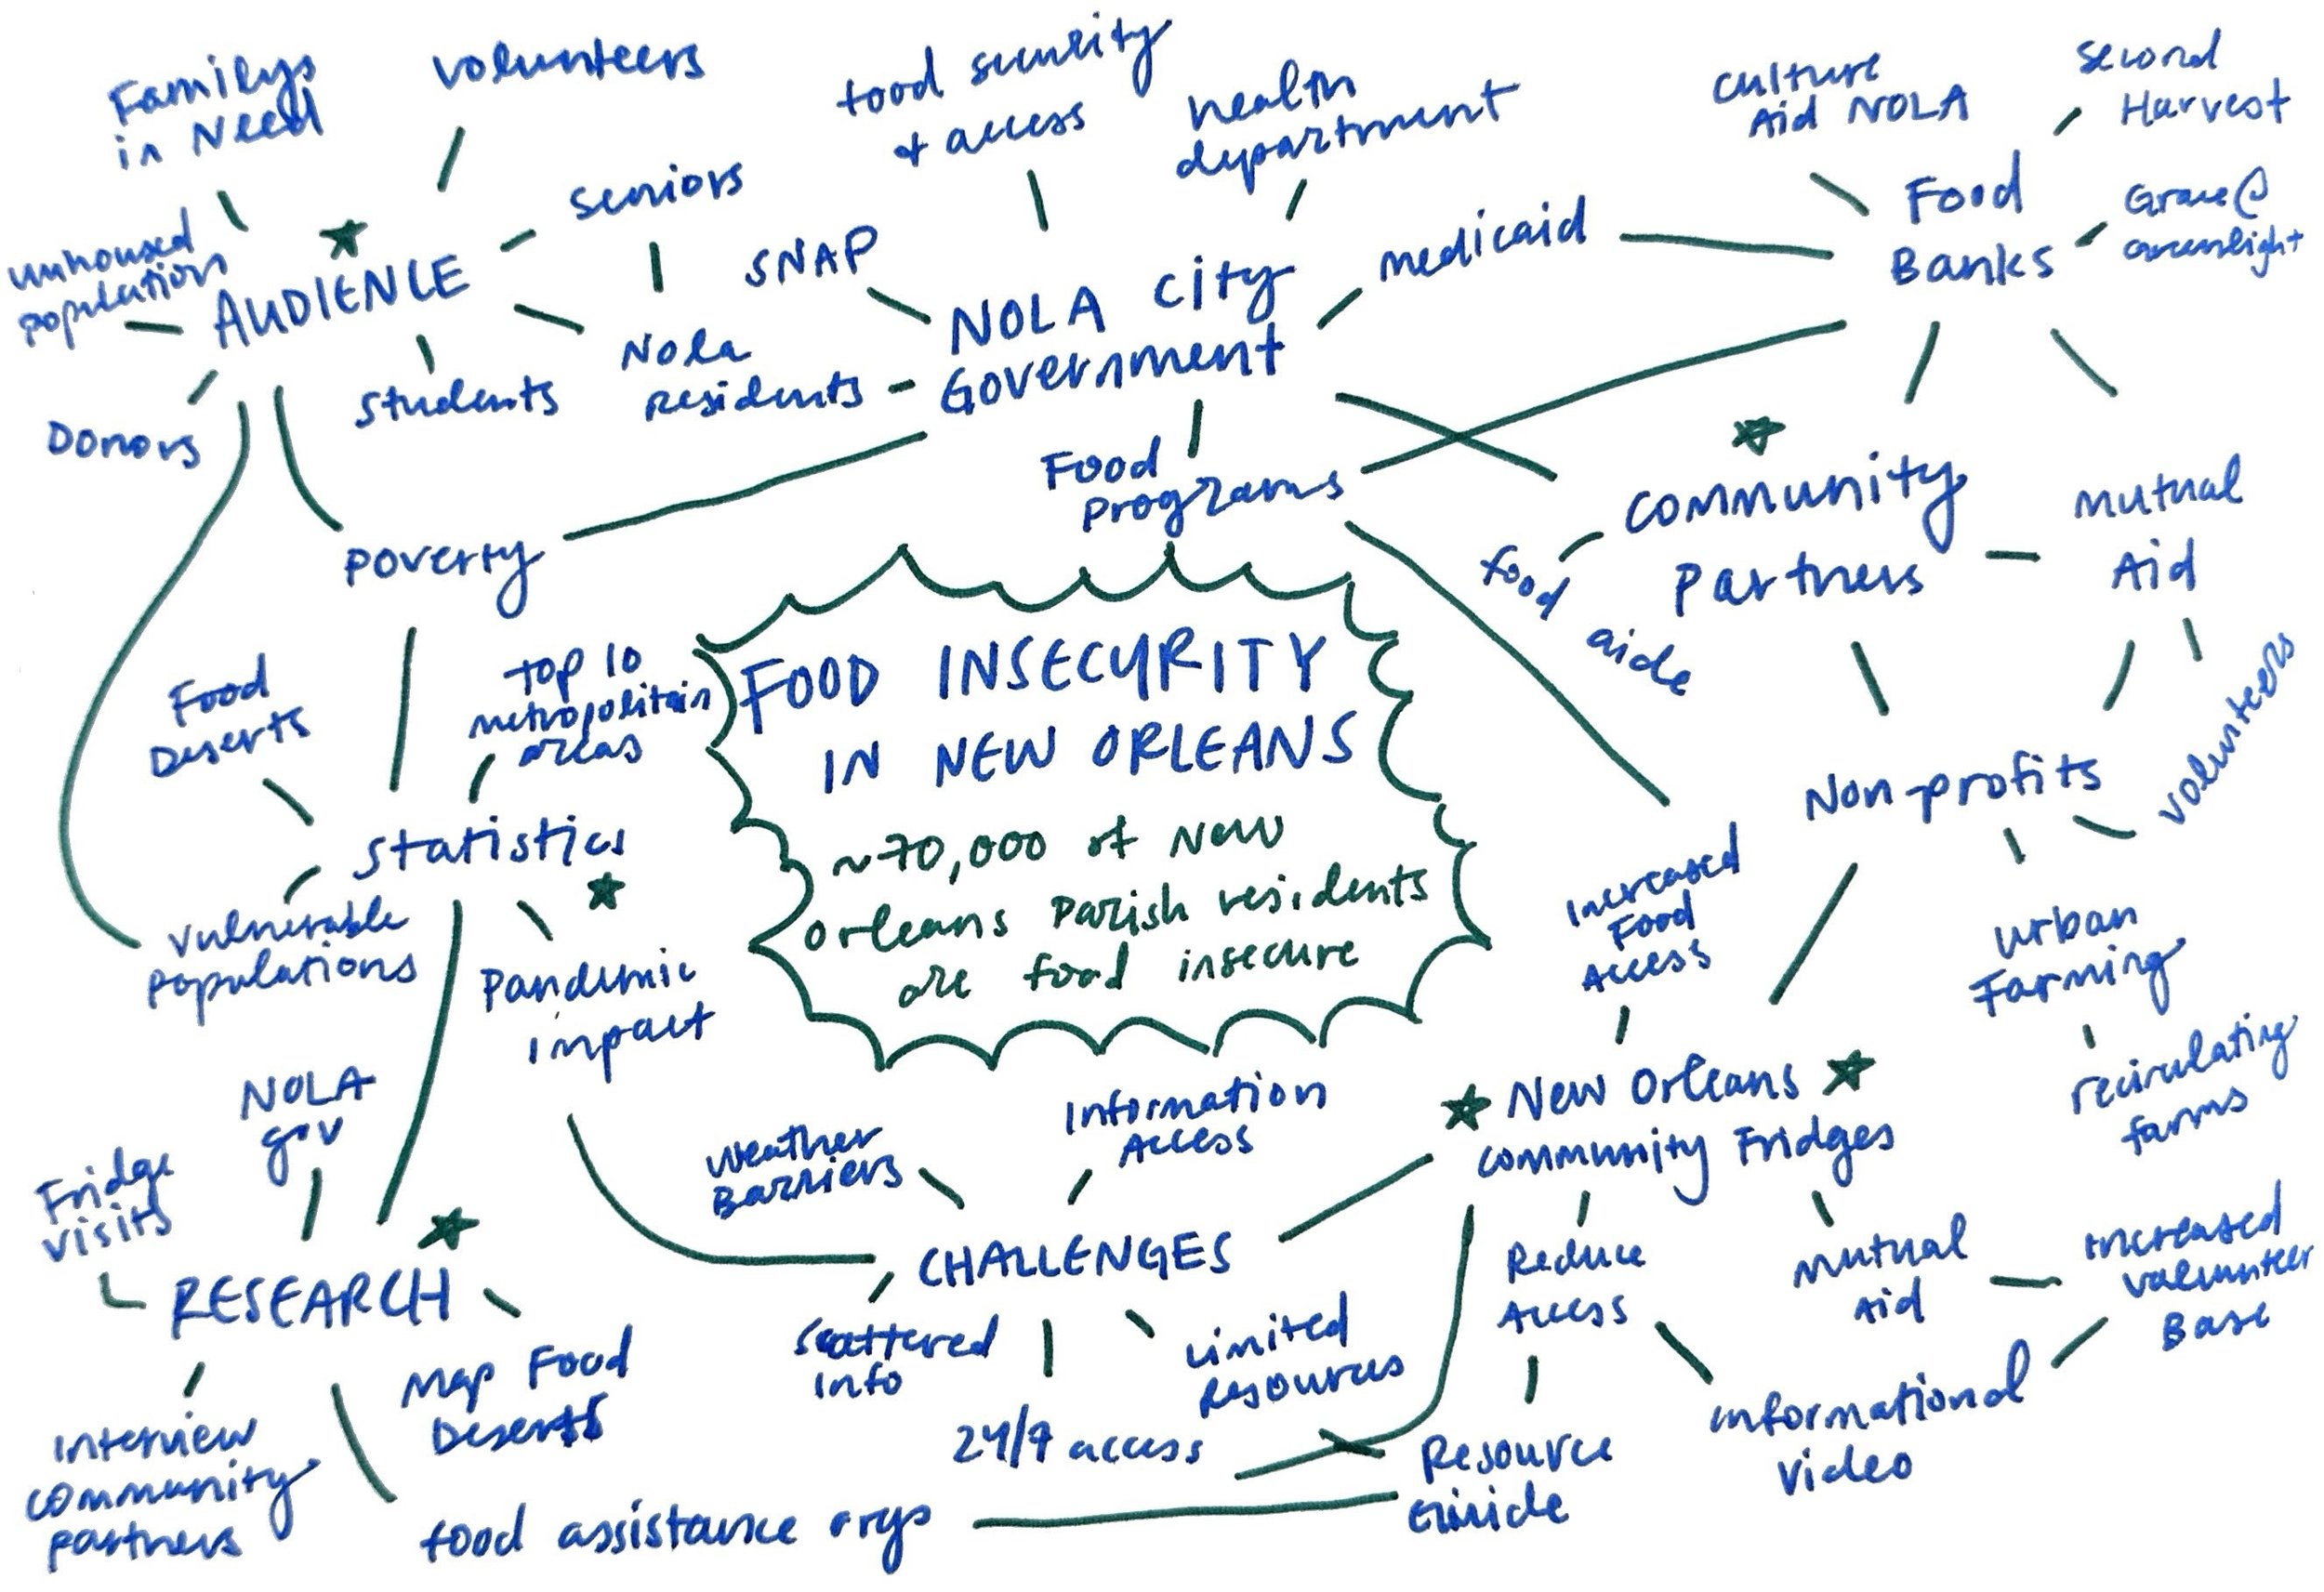 Familys
in Need
volunteers
food security
+ access
health
department
culture
Aid NOLA
second
Harvest
unhoused
population
AUDIENCE
seniors
SNAP
NOLA City
Government
medicaid
Food
Banks
Grace @
Greenlight
Donors
students
Nola
residents
Food
Programs
community
Partners
mutual
Aid
food
aide
poverty
Food
Deserts
top 10
metropolitain
areas
FOOD INSECURITY
IN NEW ORLEANS
~70,000 of New
Orleans Parish residents
are food insecure
statistics
Non-profits
volunteers
vulnerable
populations
Pandemic
impact
Increased
Food
Access
urban
Farming
recirculating
farms
NOLA
gov
Fridge
visits
Weather
Barriers
Information
Access
New Orleans
community Fridges
RESEARCH
CHALLENGES
Reduce
Access
mutual
Aid
increased
volunteer
Base
Map Food
Deserts
scattered
info
24/7 access
Limited
Resources
informational
video
Interview
community
partners
food assistance orgs
Resource
Guide